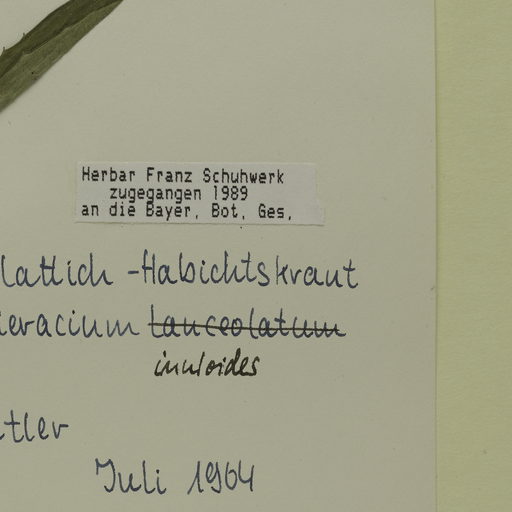 Herbar Franz Schuhwerk
zugegangen 1989
an die Bayer. Bot. Ges.
lattich-Habichtskraut
ieracium lanceolatum
inuloides
tler
Juli 1964